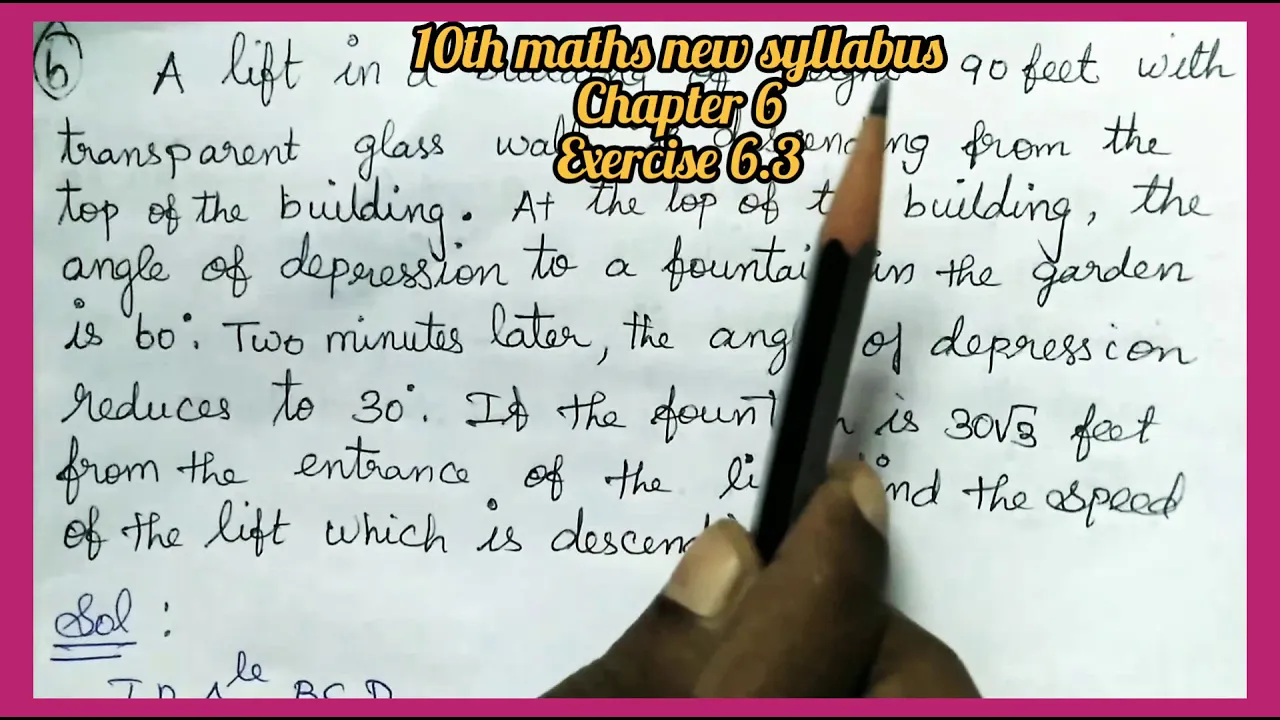 10th maths new syllabus
Chapter 6
Exercise 6.3
6 A lift in a building of 90 feet with
transparent glass descending from the
top of the building. At the top of the building, the
angle of depression to a fountain in the garden
is 60°. Two minutes later, the angle of depression
reduces to 30°. If the fountain is 30√3 feet
from the entrance of the lift find the speed
of the lift which is descending
Sol :
In Δle BCD